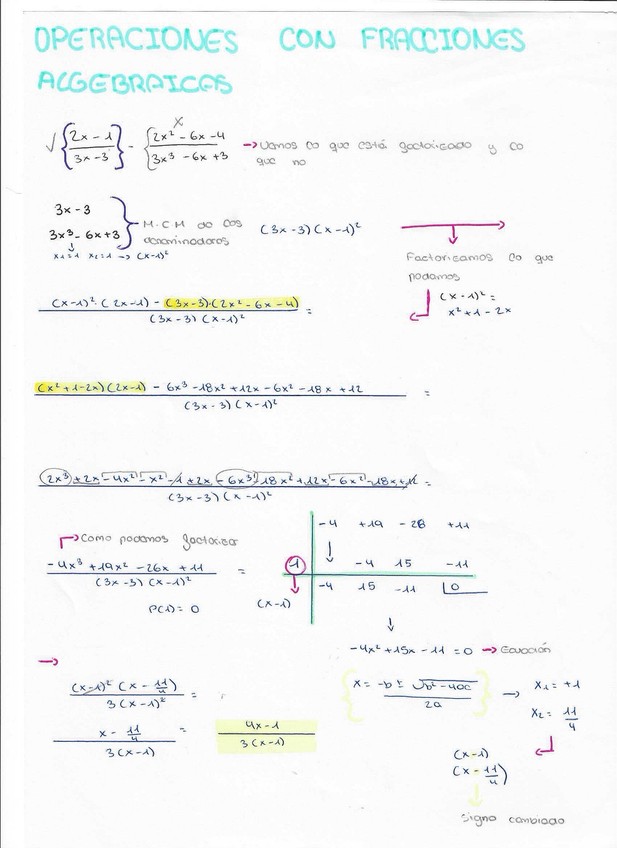 OPERACIONES CON FRACCIONES
ALGEBRAICAS
x
√ {2x - 1 / 3x - 3} - {2x² - 6x - 4 / 3x³ - 6x + 3} → Vemos lo que está factorizado y lo
que no
3x - 3
3x³ - 6x + 3 } M.C.M de los
denominadores (3x-3)(x-1)²
↓
x₁=1 x₂=1 → (x-1)²
Factorizamos lo que
podamos
(x-1)² =
x² + 1 - 2x
(x-1)² · (2x-1) - (3x-3)·(2x² - 6x - 4) / (3x-3)(x-1)² =
(x² + 1 - 2x)(2x-1) - 6x³ - 18x² + 12x - 6x² - 18x + 12 / (3x-3)(x-1)² =
2x³ + 2x - 4x² - x² - 1 + 2x - 6x³ - 18x² + 12x - 6x² - 18x + 12 / (3x-3)(x-1)² =
→ Como podemos factorizar
-4x³ + 19x² - 26x + 11 / (3x-3)(x-1)² =
P(1) = 0 (x-1)
-4 +19 -28 +11
1 ↓ -4 15 -11
-4 15 -11 0
↓
-4x² + 15x - 11 = 0 → Ecuación
x = -b ± √b² - 4ac / 2a → x₁ = +1
x₂ = 11/4
(x-1)
(x - 11/4)
↓
Signo cambiado
→
(x-1)² (x - 11/4) / 3(x-1)² =
x - 11/4 / 3(x-1) = 4x-1 / 3(x-1)